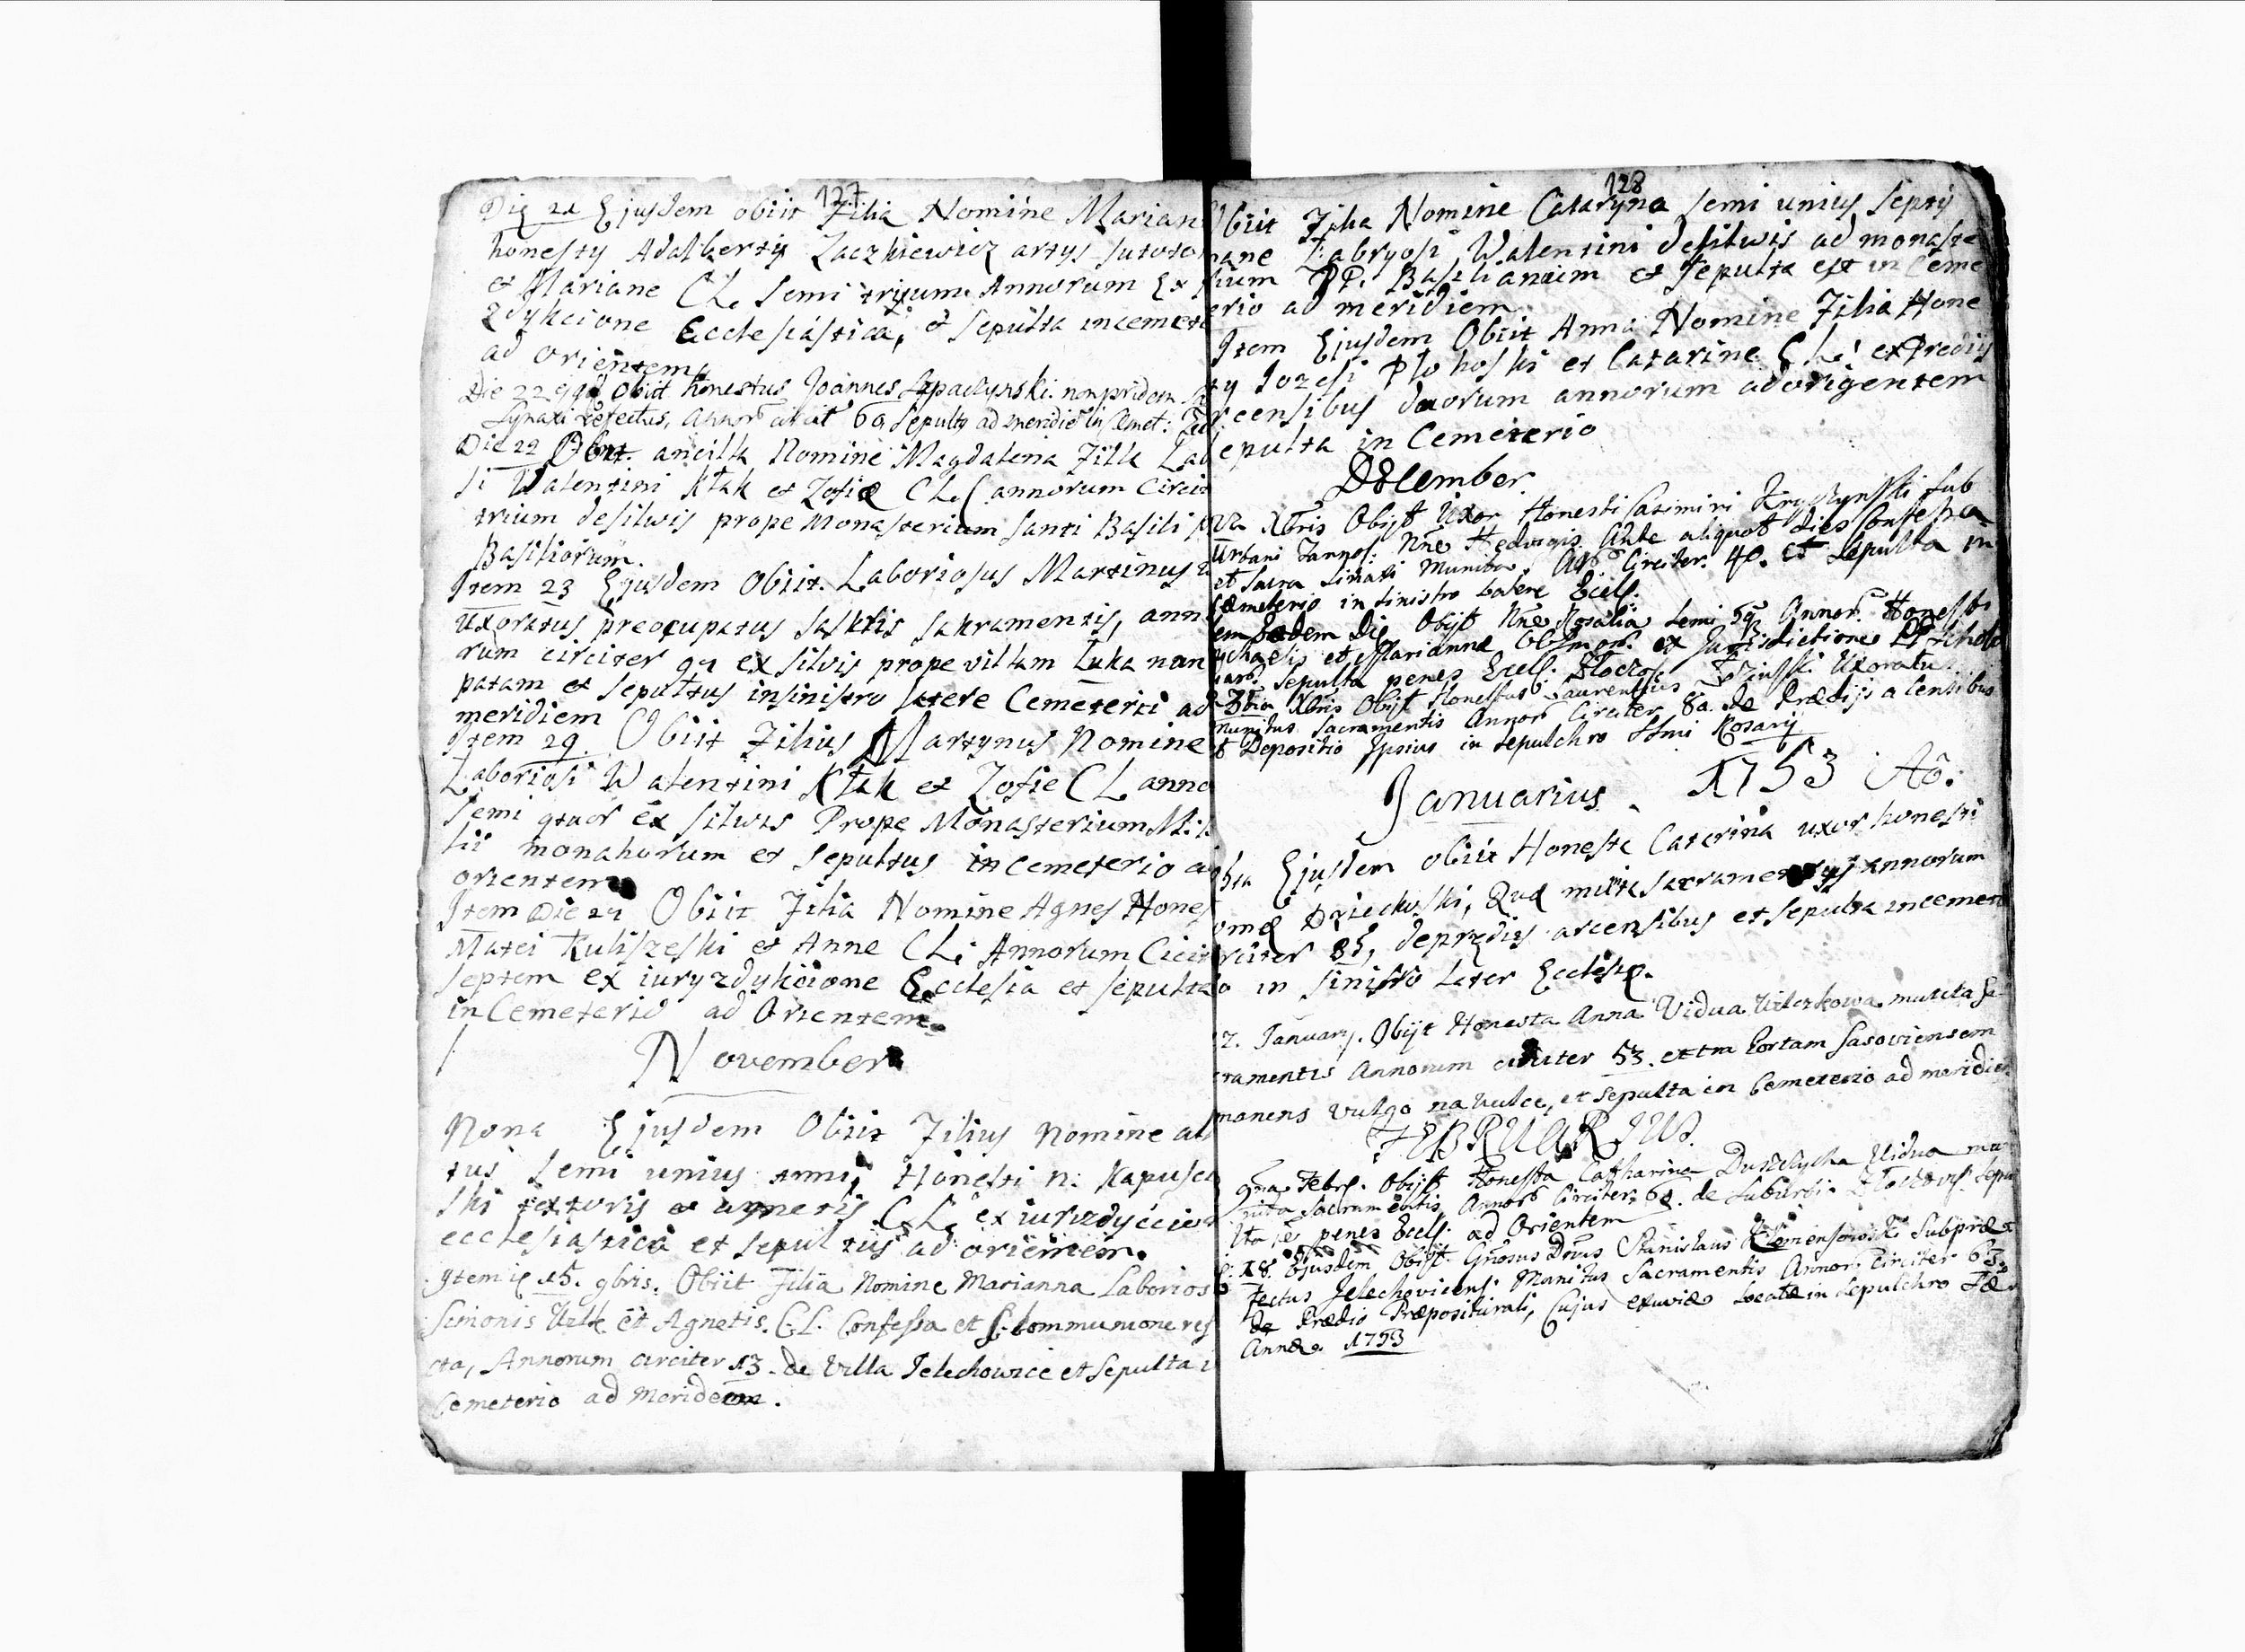 127
Die 21 Ejusdem obiit Filia Nomine Marian
honesty Adalberty Zaczkiewicz artys sutoro
et Mariane CL. Semi trium Annorum Ex
zdykcione Ecclesiastica, et sepulta incemete
ad orientem
Die 22 obiit honestus Joannes non pridem
Synaxi refectus, annor circit 60 Sepultg ad meridie in Cmet:
Die 22 Obiit ancilla Nomine Magdalena Filla Lab
si Walentini Ktak et Zofiæ CL. annorum Circit
trium desilwis prope Monasterium Santi Basili
Basiliorum.
Item 23 Ejusdem Obiit. Laboriosus Martinus
uxoratus preocupatus saskris sakramentis, ann
rum circiter ex silvis prope villam Łuka nun
patam et sepultus insinistro latere Cemeterii ad
meridiem
Item 29. Obiit Filius Martynus Nomine
Laboriosi Walentini Ktak et Zofie CL anno
Semi qtuor ex silwis Prope Monasterium
lii monahorum et sepultus in cemeterio a
orientem
Item Die 29 Obiit Filia Nomine Agnes Hones
Matei Kuliszeski et Anne CL: Annorum Circit
septem ex iuryzdykcione Ecclesia et sepulta
in Cemeterio ad Orientem.
November
Nona Ejusdem Obiit Filius Nomine al
tus Semi unius anni, Honesti n: Kapusci
ski textoris et agnetis C.L. ex
ecclesiastica et sepultus ad orientem.
Item 15. 9bris. Obiit Filia Nomine Marianna Laborios
Simonis et Agnetis. C.L. Confessa et S. Communione ref
cta, Annorum circiter 13. de Villa Jelechowice et Sepulta i
Cemeterio ad Meridem.
128
Obiit Filia Nomine Cataryna semi unius septy
mane Fabryosi, Walentini desilwis ad monaste
rium PP. Basilianum et sepulta est in Ceme
erio ad meridiem
Item Ejusdem Obiit Anna Nomine Filia Hone
ty Jozefi Płohoski et Catarine CL: ex Prediis
rcensibus duorum annorum ad origentem
epulta in Cemeterio
December.
Xbris Obijt Uxor Honesti Casimiri Kryczynski sub
Urbani Nne Hedvigis Ante aliquot dies Confessa
et Sacra Sinaxi Munita. Circiter 40. et Sepulta in
Cemeterio in sinistro latere Eccl.
em Eadem Die Obijt Nne Rosalia Semi Annor. Honesti
ychaelis et Marianna ex Jurisdictione
Sepulta penes Eccl.
Xbris Obijt Honestus Laurentius Uxoratus
munitus Sacramentis Annor. Circiter 80. de Prædijs a Censibus
t Depositio Ipsius in sepulchro SSmi Rosarij
Januarius. 1753 Ao:
Ejusdem obiit Honesta Caterina uxor honesti
Dziechoski, Quæ munita sacramentys annorum
rciter 85, deprediis arcensibus et sepulta incemen
o in sinistro later Ecclesie.
7. January. Obijt Honesta Anna Vidua Wilczkowa munita Sa
cramentis Annorum circiter 53. extra Portam Sasoviensem
manens vulgo na Hulce, et sepulta in Cemeterio ad meridiem
FEBRUARIUS.
9na Febr. Obijt Honesta Catharina Duszczycha Vidua mu
nita Sacramentis Annor. Circiter 60. de Suburbi. Sepu
lta, penes Eccl. ad Orientem
18. Ejusdem Obijt. Gnosus Dnus Stanislaus Klemensowski Subpræ
fectus Jelechovicensi Munitus Sacramentis Annor. Circiter 63.
de Prædio Præpositurali, Cujus exuviæ Locatæ in Sepulchro
Annæ. 1753